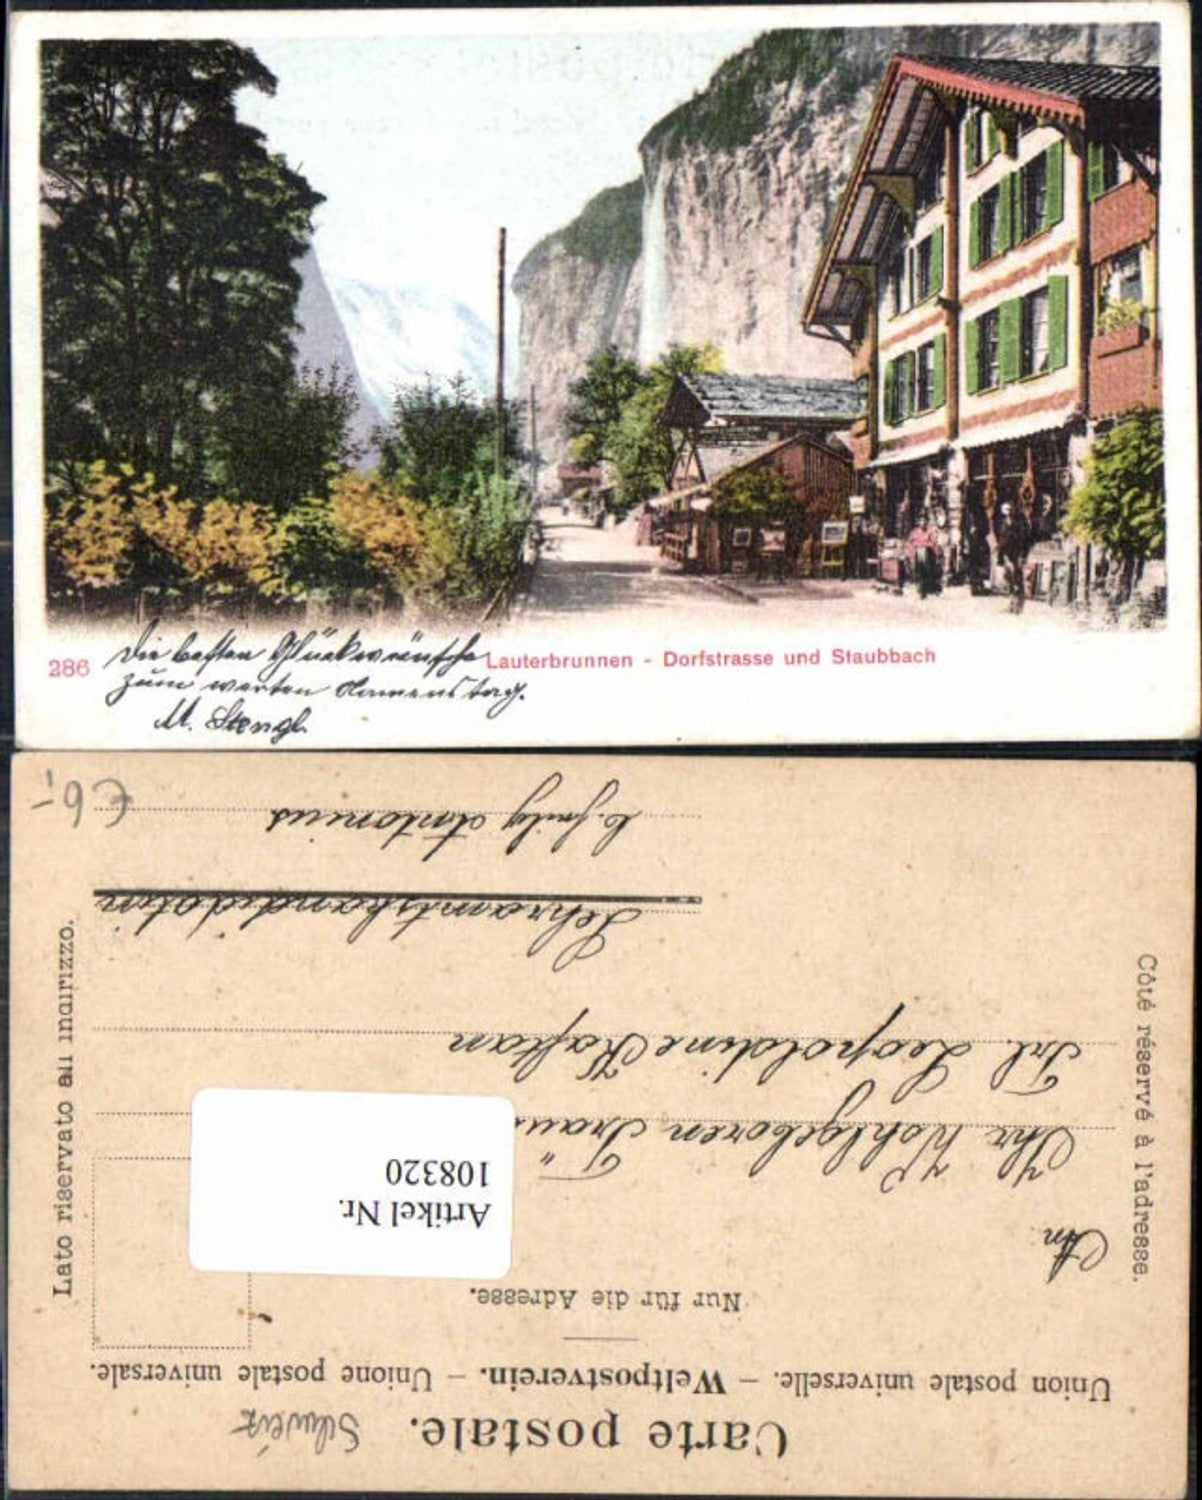 286
Die besten Glückwünsche
Lauterbrunnen - Dorfstrasse und Staubbach
zum werten Namenstag.
M. Stengl
Carte postale.
Schweiz
Union postale universelle. – Weltpostverein. – Unione postale universale.
Nur für die Adresse.
An
Artikel Nr.
108320
Ihr Wohlgeboren
Frl. Leopoldine Kaftan
Lehramtskandidatin
Antonius
€ 6,-
Côté réservé à l'adresse.
Lato riservato all indirizzo.